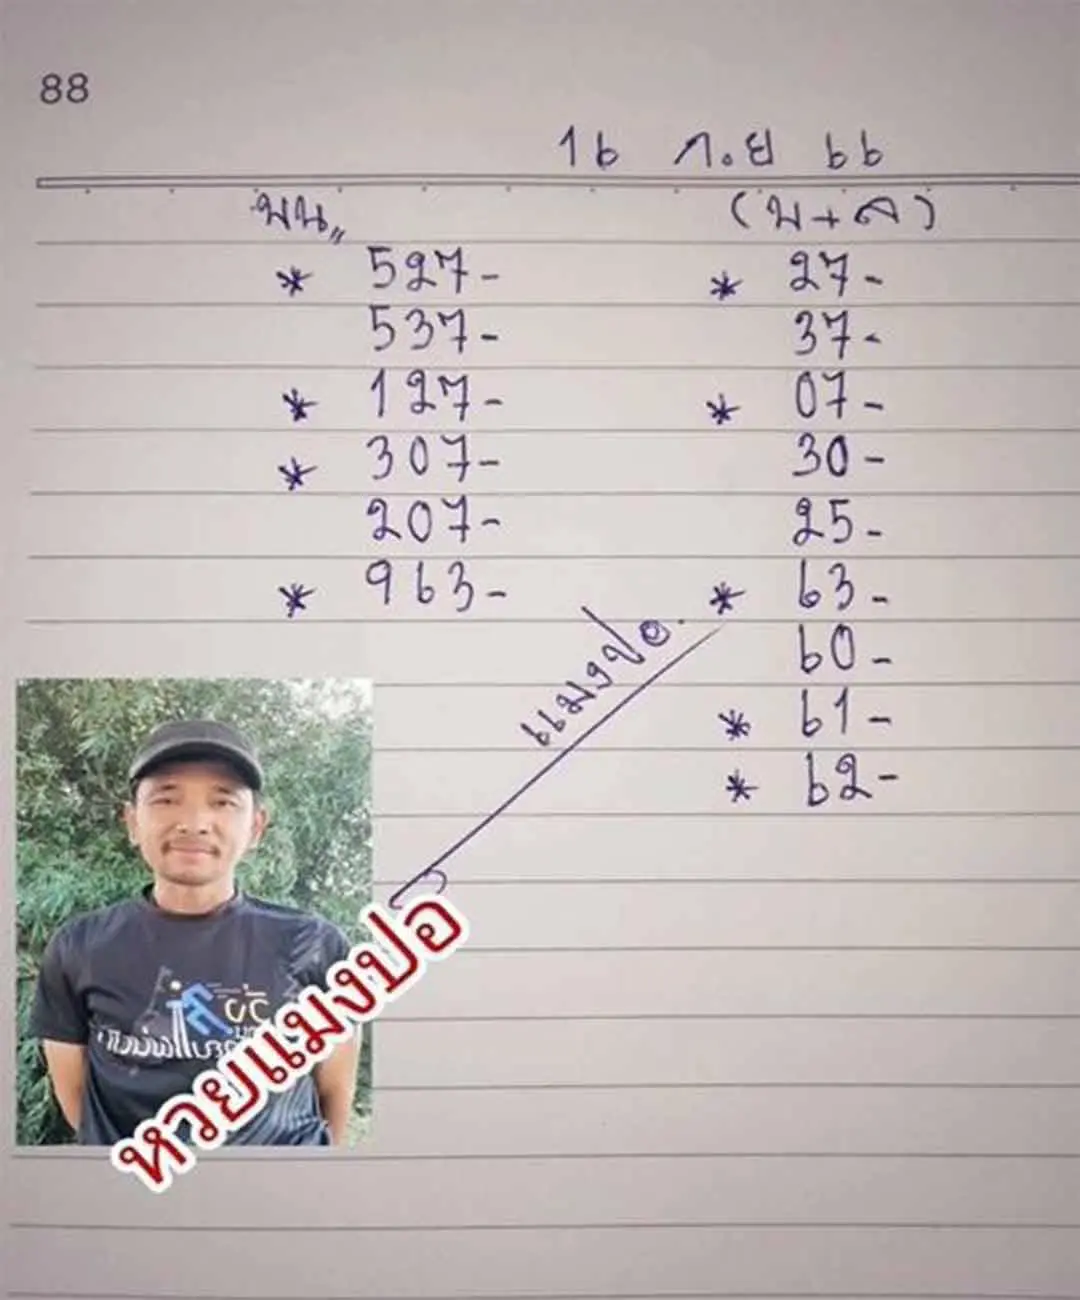 88
16 ก.ย 66
บน,,
(บ+ล)
* 527-
* 27-
537-
37-
* 127-
* 07-
* 307-
30-
207-
25-
* 963-
* 63-
60-
* 61-
* 62-
แมงปอ.
หวยแมงปอ